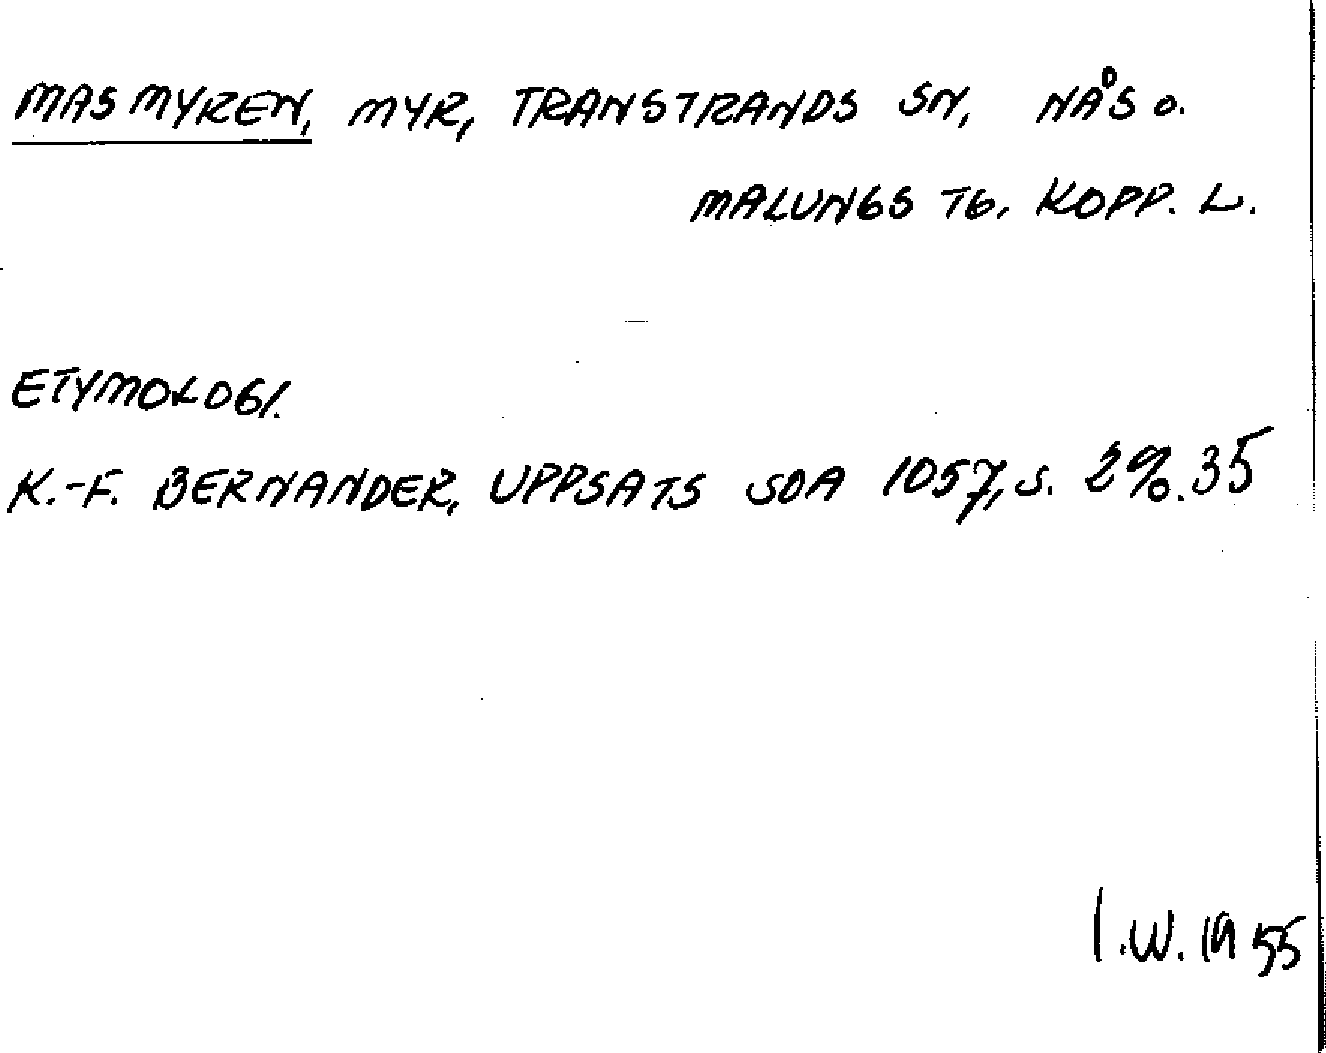 MASMYREN, MYR, TRANSTRANDS SN, NÅS O.
MALUNGS TG. KOPP. L.
ETYMOLOGI.
K.-F. BERNANDER, UPPSATS SOA 1057, S. 35
I.W. 1955